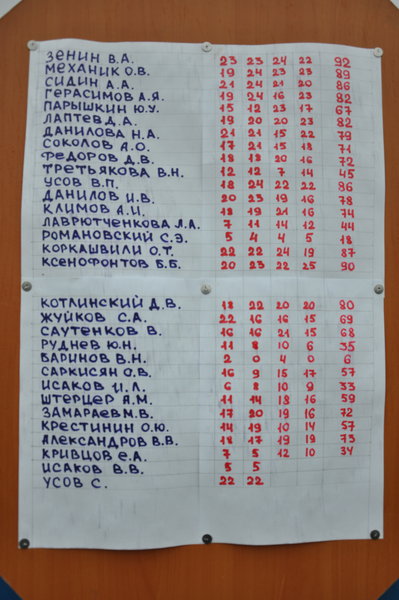 ЗЕНИН В.А. 23 23 24 22 92
МЕХАНИК О.В. 19 24 23 23 89
СИДИН А.А. 21 24 21 20 86
ГЕРАСИМОВ А.Я. 19 24 16 23 82
ПАРЫШКИН Ю.У. 15 12 23 17 67
ЛАПТЕВ Д.А. 19 20 20 23 82
ДАНИЛОВА Н.А. 21 21 15 22 79
СОКОЛОВ А.О. 17 21 15 18 71
ФЕДОРОВ Д.В. 18 18 20 16 72
ТРЕТЬЯКОВА В.Н. 12 12 7 14 45
УСОВ В.П. 18 24 22 22 86
ДАНИЛОВ И.В. 20 23 19 16 78
КЛИМОВ А.И. 18 19 21 16 74
ЛАВРЮТЧЕНКОВА Л.А. 7 11 14 12 44
РОМАНОВСКИЙ С.Э. 5 4 4 5 18
КОРКАШВИЛИ О.Т. 22 22 24 19 87
КСЕНОФОНТОВ Б.Б. 20 23 22 25 90
КОТЛИНСКИЙ Д.В. 18 22 20 20 80
ЖУЙКОВ С.А. 22 16 16 15 69
САУТЕНКОВ В. 16 16 21 15 68
РУДНЕВ Ю.Н. 11 8 10 6 35
БАРИНОВ В.Н. 2 0 4 0 6
САРКИСЯН О.В. 16 9 15 17 57
ИСАКОВ И.Л. 6 8 10 9 33
ШТЕРЦЕР Я.М. 11 14 18 16 59
ЗАМАРАЕВ М.В. 17 20 19 16 72
КРЕСТИНИН О.Ю. 14 19 10 14 57
АЛЕКСАНДРОВ В.В. 18 17 19 19 73
КРИВЦОВ Е.А. 7 5 12 10 34
ИСАКОВ В.В. 5 5
УСОВ С. 22 22